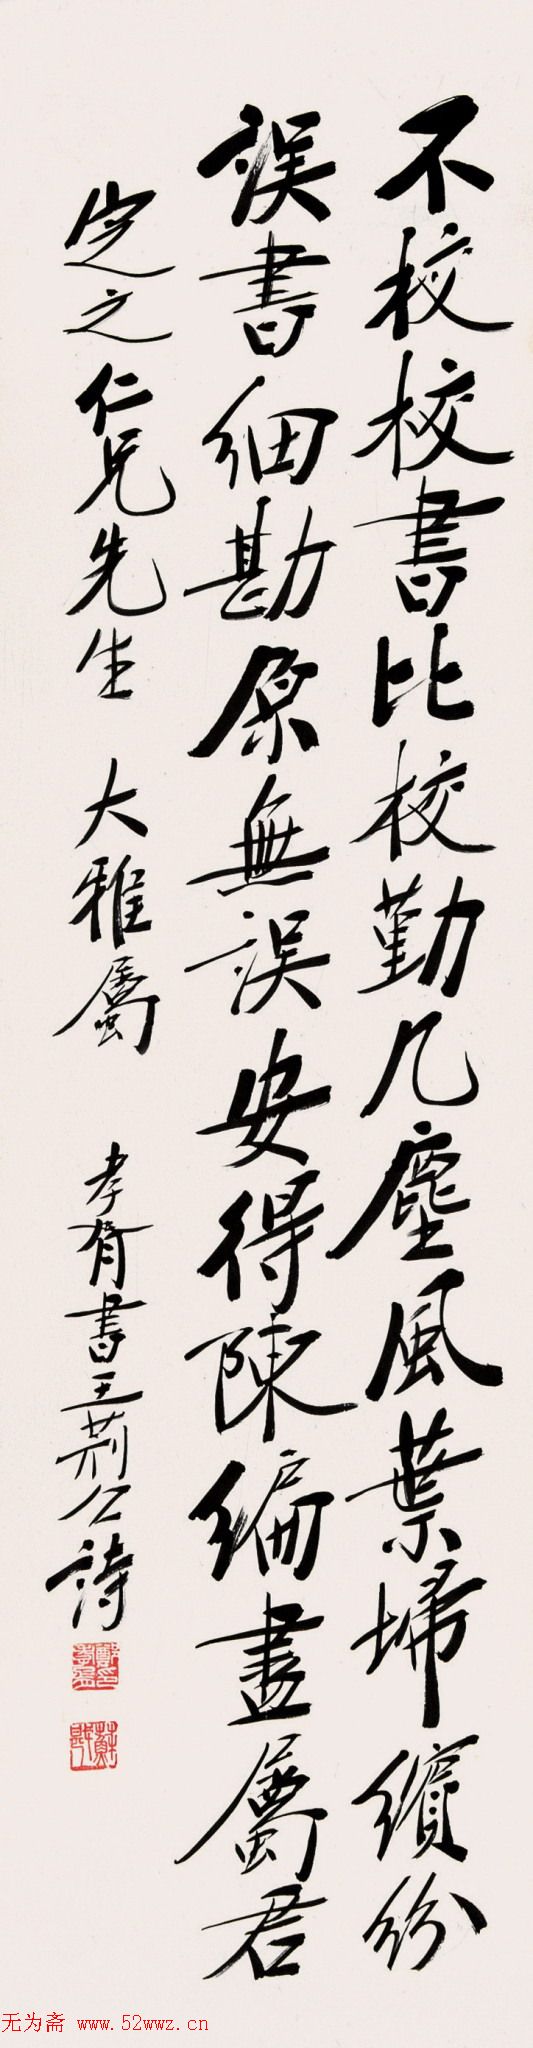 不校校書比校勤几塵風葉埽繽紛
誤書細勘原無誤安得陳編盡屬君
定之仁兄先生 大雅屬 孝胥書王荊公詩
无为斋 www.52wwz.cn